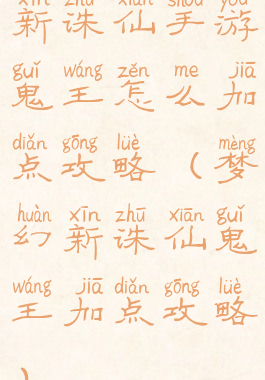 xīn zhū xiān shǒu yóu
新诛仙手游
guǐ wáng zěn me jiā
鬼王怎么加
diǎn gōng lüè mèng
点攻略（梦
huàn xīn zhū xiān guǐ
幻新诛仙鬼
wáng jiā diǎn gōng lüè
王加点攻略
）